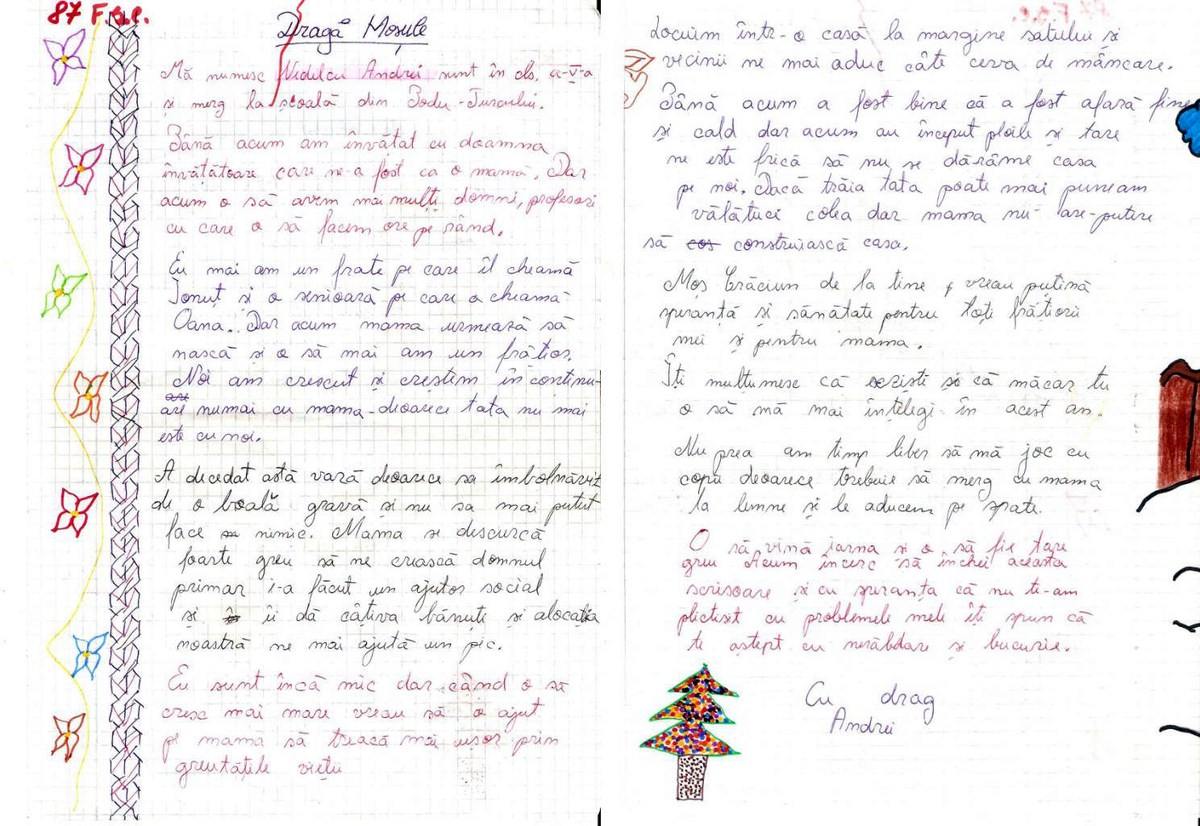 87 F.s.c.
Dragă Moșule
Mă numesc Nedelcu Andrei sunt în cls. a-V-a
și merg la școală din Podu-Turcului.
Până acum am învătat cu doamna
învățătoare care ne-a fost ca o mamă. Dar
acum o să avem mai mulți domni, profesori
cu care o să facem ore pe rând.
Eu mai am un frate pe care îl cheamă
Ionuț și o surioară pe care o cheamă
Oana. Dar acum mama urmează să
nască și o să mai am un frățior.
Noi am crescut și creștem în continu-
are numai cu mama-deoarece tata nu mai
este cu noi.
A decedat astă vară deoarece sa îmbolnăvit
de o boală gravă și nu sa mai putut
face nimic. Mama se descurcă
foarte greu să ne crească domnul
primar i-a făcut un ajutor social
și îi dă câtiva bănuți si alocația
noastră ne mai ajută un pic.
Eu sunt încă mic dar când o să
cresc mai mare vreau să o ajut
pe mama să treacă mai ușor prin
greutațile vieții
Locuim într-o casă la margine satului și
vicinii ne mai aduc câte ceva de mâncare.
Până acum a fost bine că a fost afară fine
și cald dar acum au început ploile și tare
ne este frică să nu se dărâme casa
pe noi. Dacă trăia tata poate mai puneam
vălătuci colea dar mama nu-are-putere
să cos construiască casa.
Moș Crăciun de la tine vreau puțină
speranță și sănătate pentru toți frățiorii
mei și pentru mama.
Îți multumesc că există și că măcar tu
o să mă mai înțelegi în acest an.
Nu prea am timp liber să mă joc cu
copii deoarece trebuie să merg cu mama
la lemne și le aducem pe spate.
O să vină iarna si o să fie tare
greu Acum încerc să închei aceasta
scrisoare și cu speranța că nu ti-am
plictisit cu problemele mele îți spun că
te aștept cu nerăbdare și bucurie.
Cu drag
Andrei